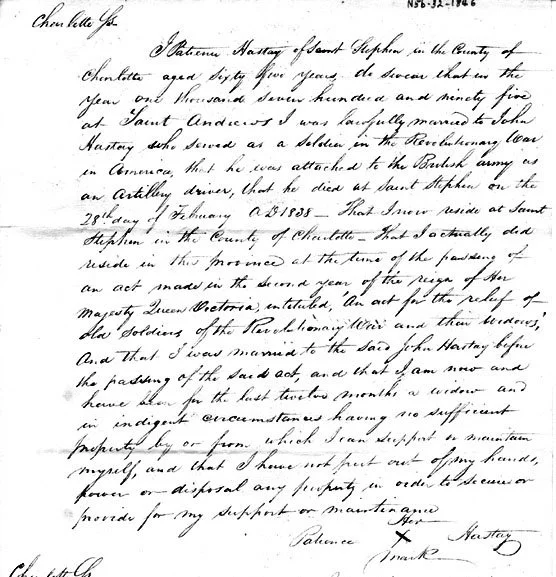 N56-32-1846
Charlotte Ss
I Patience Hastay of Saint Stephen in the County of
Charlotte aged Sixty five years do swear that in the
year one thousand seven hundred and ninety five
at Saint Andrews I was lawfully married to John
Hastay who served as a Soldier in the Revolutionary War
in America, that he was attached to the British army as
an Artillery driver, that he died at Saint Stephen on the
28th day of February A D 1838 – That I now reside at Saint
Stephen in the County of Charlotte – That I actually did
reside in this province at the time of the passing of
an act made in the second year of the reign of Her
Majesty Queen Victoria, intituled, "An act for the relief of
old Soldiers of the Revolutionary War and their widows,"
And that I was married to the said John Hastay before
the passing of the said act, and that I am now and
have been for the last twelve months a widow and
in indigent circumstances having no sufficient
property by or from which I can support or maintain
myself, and that I have not put out of my hands,
power or disposal any property in order to secure or
provide for my support or maintenance
Her
Patience X Hastay
mark
Charlotte Ss